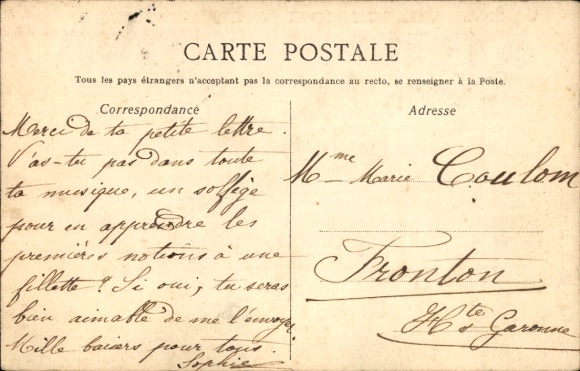 CARTE POSTALE
Tous les pays étrangers n'acceptant pas la correspondance au recto, se renseigner à la Poste.
Correspondance
Merci de ta petite lettre.
N'as-tu pas dans toute
ta musique, un solfège
pour en apprendre les
premières notions à une
fillette? Si oui, tu seras
bien aimable de me l'envoyer
Mille baisers pour tous.
Sophie
Adresse
Mme Marie Coulom
Fronton
Hte Garonne